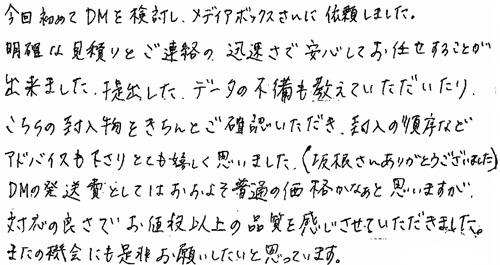 今回初めてDMを検討し、メディアボックスさんに依頼しました。
明確な見積りとご連絡の迅速さで安心してお任せすることが
出来ました。提出した、データの不備も教えていただいたり、
こちらの封入物をきちんとご確認いただき、封入の順序など
アドバイスも下さりとても嬉しく思いました。(坂根さんありがとうございました)
DMの発送費としてはおおよそ普通の価格かなぁと思いますが、
対応の良さでお値段以上の品質を感じさせていただきました。
またの機会にも是非お願いしたいと思っています。